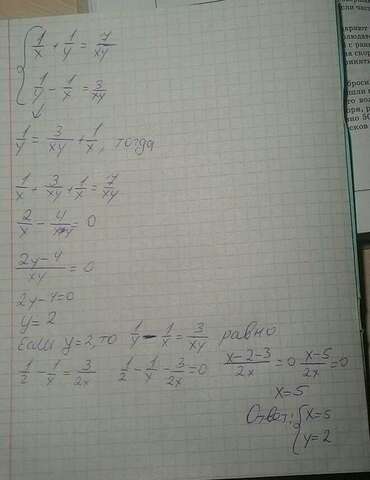 1/x + 1/y = 7/xy
1/y - 1/x = 3/xy
1/y = 3/xy + 1/x, тогда
1/x + 3/xy + 1/x = 7/xy
2/x - 4/xy = 0
(2y-4)/xy = 0
2y-4=0
y=2
Если y=2, то 1/y - 1/x = 3/xy равно
1/2 - 1/x = 3/2x 1/2 - 1/x - 3/2x = 0 (x-2-3)/2x = 0 (x-5)/2x = 0
x=5
Ответ: { x=5
y=2